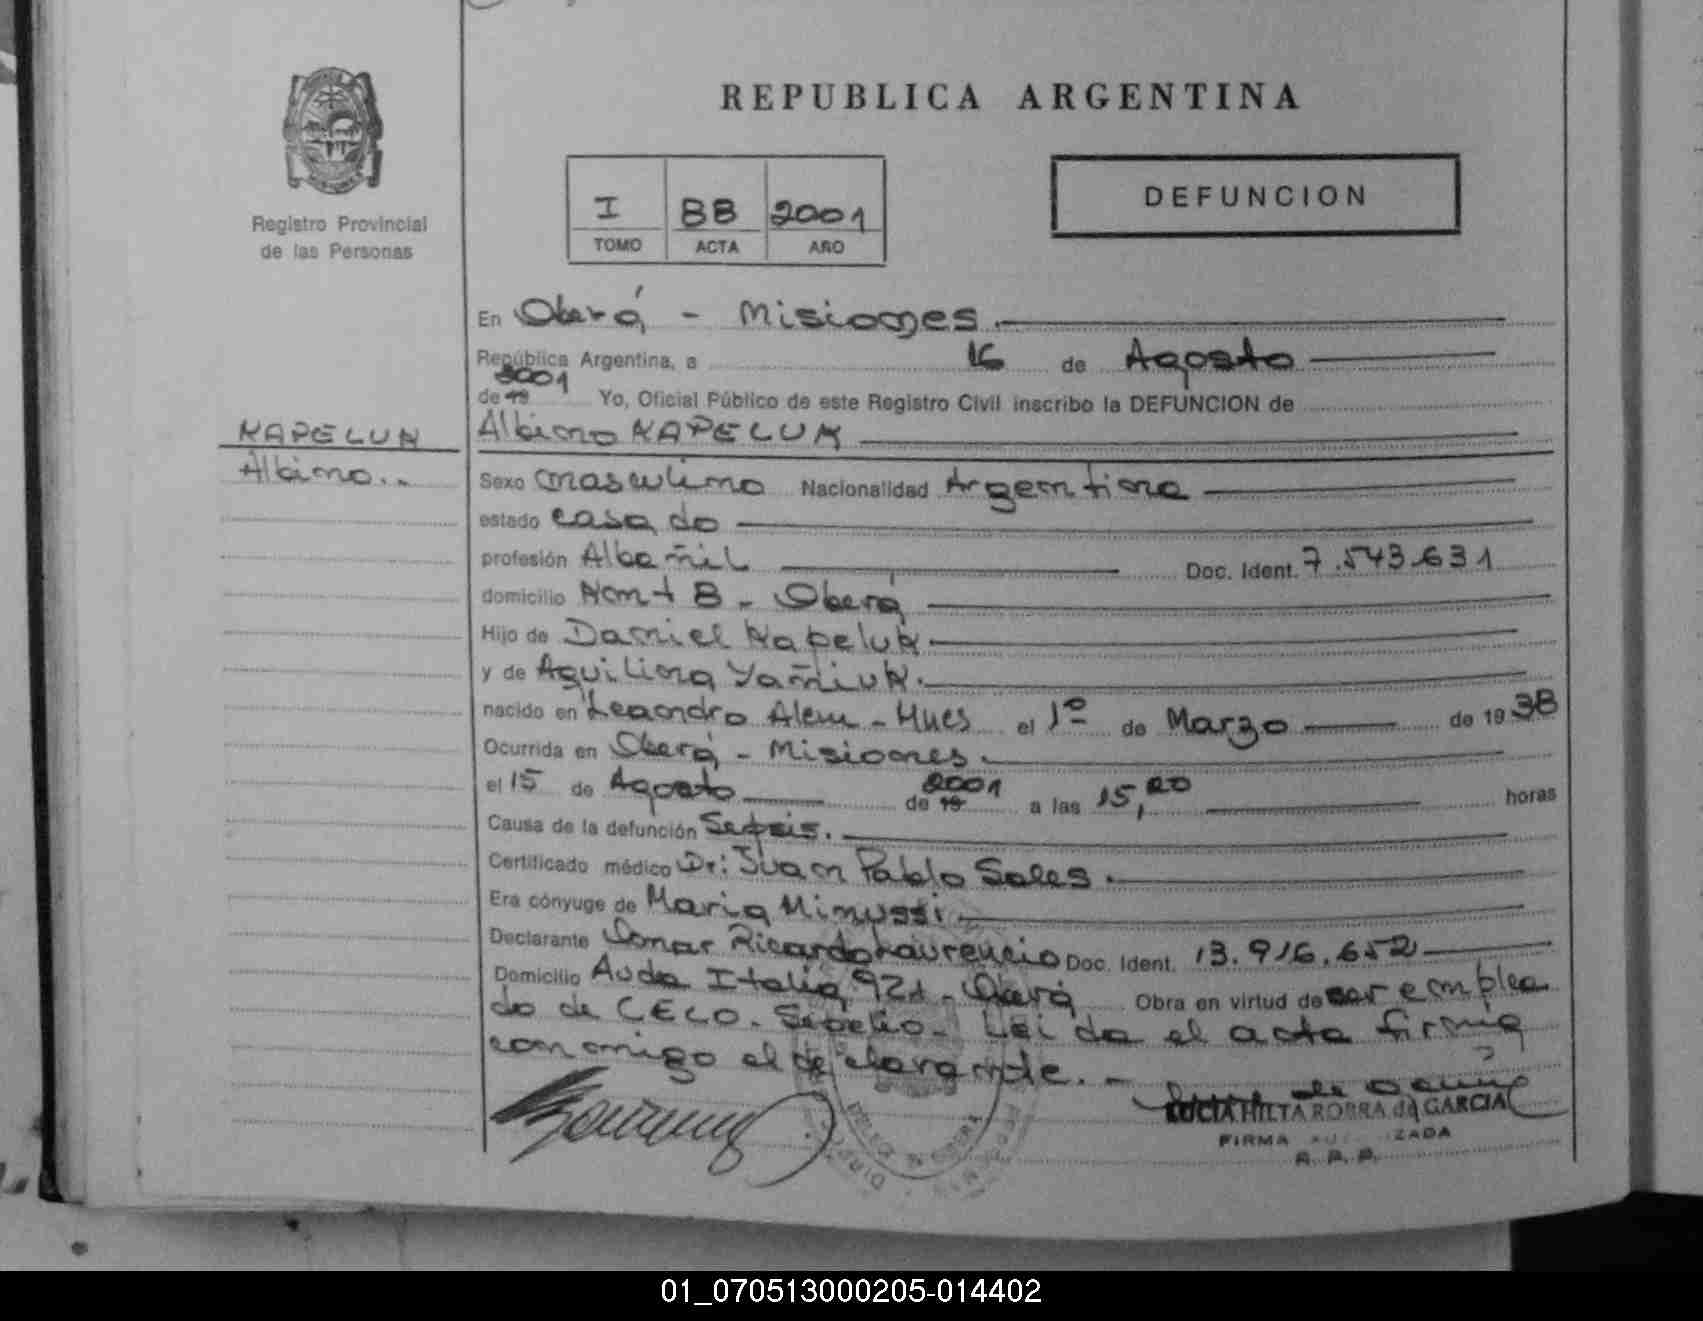 REPUBLICA ARGENTINA
Registro Provincial
de las Personas
I BB 2001
TOMO ACTA AÑO
DEFUNCION
En Oberá - Misiones.
República Argentina, a 16 de Agosto
de 19 2001 Yo, Oficial Público de este Registro Civil inscribo la DEFUNCION de
KAPELUK
Albino..
Albino KAPELUK
Sexo masculino Nacionalidad Argentina
estado casado
profesión Albañil Doc. Ident. 7.543.631
domicilio Km + 8 - Oberá
Hijo de Daniel Kapeluk
y de Aquilina Yañiuk.
nacido en Leandro Alem - Mnes el 1º de Marzo de 19 38
Ocurrida en Oberá - Misiones.
el 15 de Agosto de 19 2001 a las 15,20 horas
Causa de la defunción Sepsis.
Certificado médico Dr: Juan Pablo Sales.
Era cónyuge de Maria Minussi.
Declarante Omar Ricardo Laurencio Doc. Ident. 13.916.652
Domicilio Avda Italia 921 - Oberá Obra en virtud de ser emplea
do de CELO. Sepelio - Leida el acta firma
conmigo el declarante. -
LUCIA HILTA ROBRA de GARCIA
FIRMA AUTORIZADA
R. P. P.
01_070513000205-014402